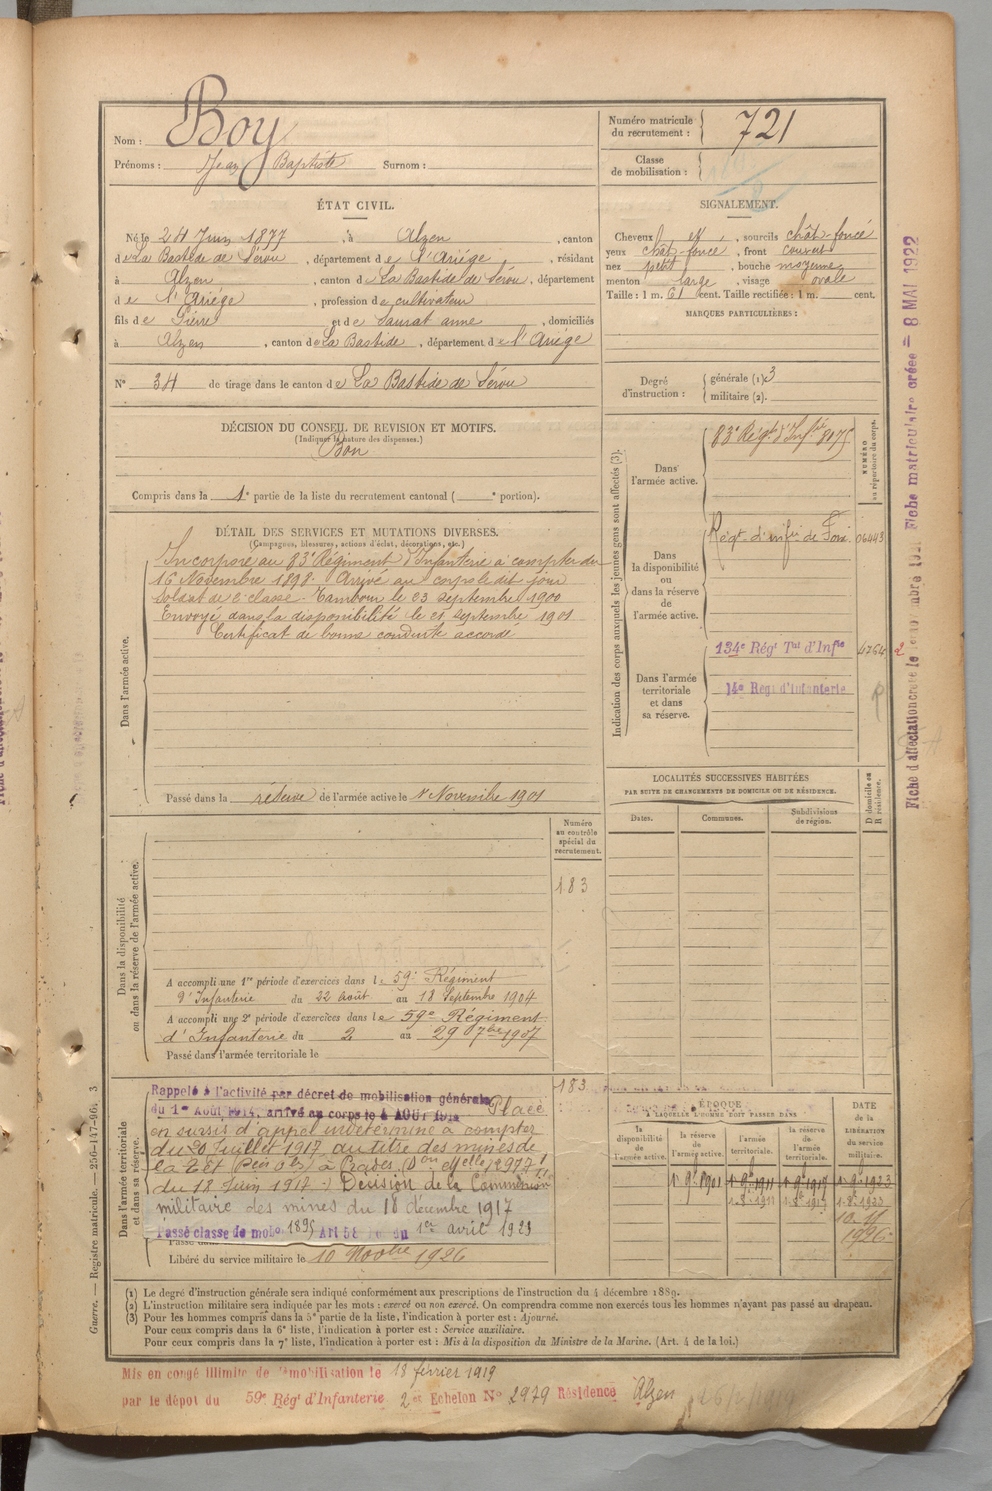 Nom : Boy
Prénoms : Jean Baptiste Surnom :
Numéro matricule du recrutement : 721
Classe de mobilisation :
ÉTAT CIVIL.
Né le 24 Juin 1877, à Alzen, canton
de La Bastide de Sérou, département de l'Ariège, résidant
à Alzen, canton de La Bastide de Sérou, département
de l'Ariège, profession de cultivateur
fils de Pierre et de Saurat anne, domiciliés
à Alzen, canton de La Bastide, département de l'Ariège
N° 34 de tirage dans le canton de La Bastide de Sérou
SIGNALEMENT.
Cheveux, sourcils chât-foncé
yeux chât-foncé, front couvert
nez petit, bouche moyenne
menton large, visage ovale
Taille : 1 m. 61 cent. Taille rectifiée : 1 m. cent.
MARQUES PARTICULIÈRES :
Degré d'instruction : générale (1). 3
militaire (2).
DÉCISION DU CONSEIL DE REVISION ET MOTIFS.
(Indiquer la nature des dispenses.)
Bon
Compris dans la 1e partie de la liste du recrutement cantonal ( e portion).
DÉTAIL DES SERVICES ET MUTATIONS DIVERSES.
(Campagnes, blessures, actions d'éclat, décorations, etc.)
Dans l'armée active.
Incorporé au 83e Régiment d'Infanterie à compter du
16 Novembre 1898. Arrivé au corps le dit jour
Soldat de 2e classe. Tambour le 23 septembre 1900
Envoyé dans la disponibilité le 21 septembre 1901
Certificat de bonne conduite accordé
Passé dans la réserve de l'armée active le 1 Novembre 1901
Indication des corps auxquels les jeunes gens sont affectés (3).
NUMÉRO au répertoire du corps.
Dans l'armée active.
83e Régt d'Infrie 8175
Dans la disponibilité ou dans la réserve de l'armée active.
Régt d'infie de Foix 06443
Dans l'armée territoriale et dans sa réserve.
134e Régt Tal d'Infie 4764
14e Régt d'Infanterie
LOCALITÉS SUCCESSIVES HABITÉES
PAR SUITE DE CHANGEMENTS DE DOMICILE OU DE RÉSIDENCE.
D domicile ou R résidence.
Dates. Communes. Subdivisions de région.
Numéro au contrôle spécial du recrutement.
183
Dans la disponibilité ou dans la réserve de l'armée active.
A accompli une 1re période d'exercices dans le 59e Régiment
d'Infanterie du 22 août au 18 Septembre 1904
A accompli une 2e période d'exercices dans le 59e Régiment
d'Infanterie du 2 au 29 7bre 1907
Passé dans l'armée territoriale le
183
Dans l'armée territoriale et dans sa réserve.
Rappelé à l'activité par décret de mobilisation générale
du 1er Août 1914, arrivé au corps le 4 AOUT 1914 Placé
en sursis d'appel indéterminé à compter
du 20 Juillet 1917 au titre des mines de
du 18 Juin 1917 Décision de la Commission
militaire des mines du 18 décembre 1917
Passé classe de mobon 1895 Art 58 du 1er avril 1923
Libéré du service militaire le 10 Novbre 1926
ÉPOQUE
À LAQUELLE L'HOMME DOIT PASSER DANS
la disponibilité de l'armée active. la réserve de l'armée active. l'armée territoriale. la réserve de l'armée territoriale.
DATE de la LIBÉRATION du service militaire.
1 9bre 1901 1 9bre 1911 1 9bre 1917 1 9bre 1923
10-11 1926
(1) Le degré d'instruction générale sera indiqué conformément aux prescriptions de l'instruction du 4 décembre 1889.
(2) L'instruction militaire sera indiquée par les mots : exercé ou non exercé. On comprendra comme non exercés tous les hommes n'ayant pas passé au drapeau.
(3) Pour les hommes compris dans la 5e partie de la liste, l'indication à porter est : Ajourné.
Pour ceux compris dans la 6e liste, l'indication à porter est : Service auxiliaire.
Pour ceux compris dans la 7e liste, l'indication à porter est : Mis à la disposition du Ministre de la Marine. (Art. 4 de la loi.)
Mis en congé illimité de démobilisation le 18 février 1919
par le dépot du 59e Régt d'Infanterie 2e Echelon N° 2979 Résidence Alzen
Guerre. — Registre matricule. — 256-147-96. 3
Fiche matriculaire créée = 8 MAI 1922